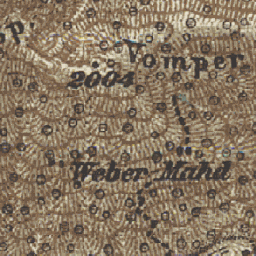 Sp.
Vomper
2004
Weber Mahd